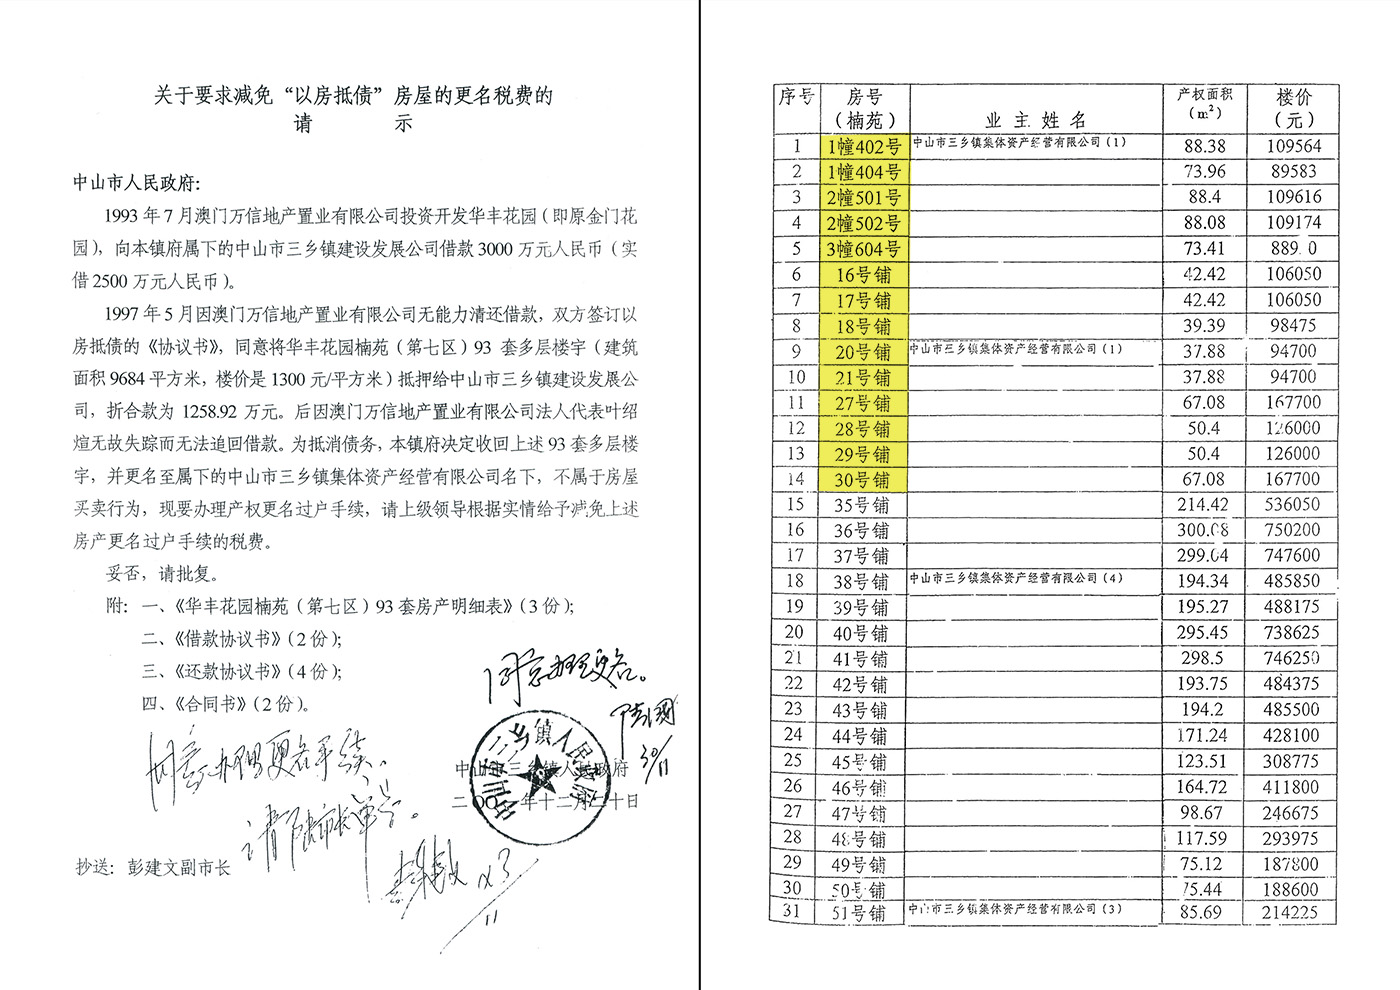 关于要求减免“以房抵债”房屋的更名税费的
请 示
中山市人民政府:
1993 年 7 月澳门万信地产置业有限公司投资开发华丰花园（即原金门花
园），向本镇府属下的中山市三乡镇建设发展公司借款 3000 万元人民币（实
借 2500 万元人民币）。
1997 年 5 月因澳门万信地产置业有限公司无能力清还借款，双方签订以
房抵债的《协议书》，同意将华丰花园楠苑（第七区）93 套多层楼宇（建筑
面积 9684 平方米，楼价是 1300 元/平方米）抵押给中山市三乡镇建设发展公
司，折合款为 1258.92 万元。后因澳门万信地产置业有限公司法人代表叶绍
煊无故失踪而无法追回借款。为抵消债务，本镇府决定收回上述 93 套多层楼
宇，并更名至属下的中山市三乡镇集体资产经营有限公司名下，不属于房屋
买卖行为，现要办理产权更名过户手续，请上级领导根据实情给予减免上述
房产更名过户手续的税费。
妥否，请批复。
附：一、《华丰花园楠苑（第七区）93 套房产明细表》（3 份）；
二、《借款协议书》（2 份）；
三、《还款协议书》（4 份）；
四、《合同书》（2 份）。
同意办理更名。
30/11
同意办理更名手续。
中山市三乡镇人民政府
中山市三乡镇人民政府
年十二月二十日
抄送：彭建文副市长
11
序号 房号（楠苑） 业主姓名 产权面积（m²） 楼价（元）
1 1幢402号 中山市三乡镇集体资产经营有限公司（1） 88.38 109564
2 1幢404号 73.96 89583
3 2幢501号 88.4 109616
4 2幢502号 88.08 109174
5 3幢604号 73.41 889 0
6 16号铺 42.42 106050
7 17号铺 42.42 106050
8 18号铺 39.39 98475
9 20号铺 中山市三乡镇集体资产经营有限公司（1） 37.88 94700
10 21号铺 37.88 94700
11 27号铺 67.08 167700
12 28号铺 50.4 126000
13 29号铺 50.4 126000
14 30号铺 67.08 167700
15 35号铺 214.42 536050
16 36号铺 300.08 750200
17 37号铺 299.04 747600
18 38号铺 中山市三乡镇集体资产经营有限公司（4） 194.34 485850
19 39号铺 195.27 488175
20 40号铺 295.45 738625
21 41号铺 298.5 746250
22 42号铺 193.75 484375
23 43号铺 194.2 485500
24 44号铺 171.24 428100
25 45号铺 123.51 308775
26 46号铺 164.72 411800
27 47号铺 98.67 246675
28 48号铺 117.59 293975
29 49号铺 75.12 187800
30 50号铺 75.44 188600
31 51号铺 中山市三乡镇集体资产经营有限公司（3） 85.69 214225